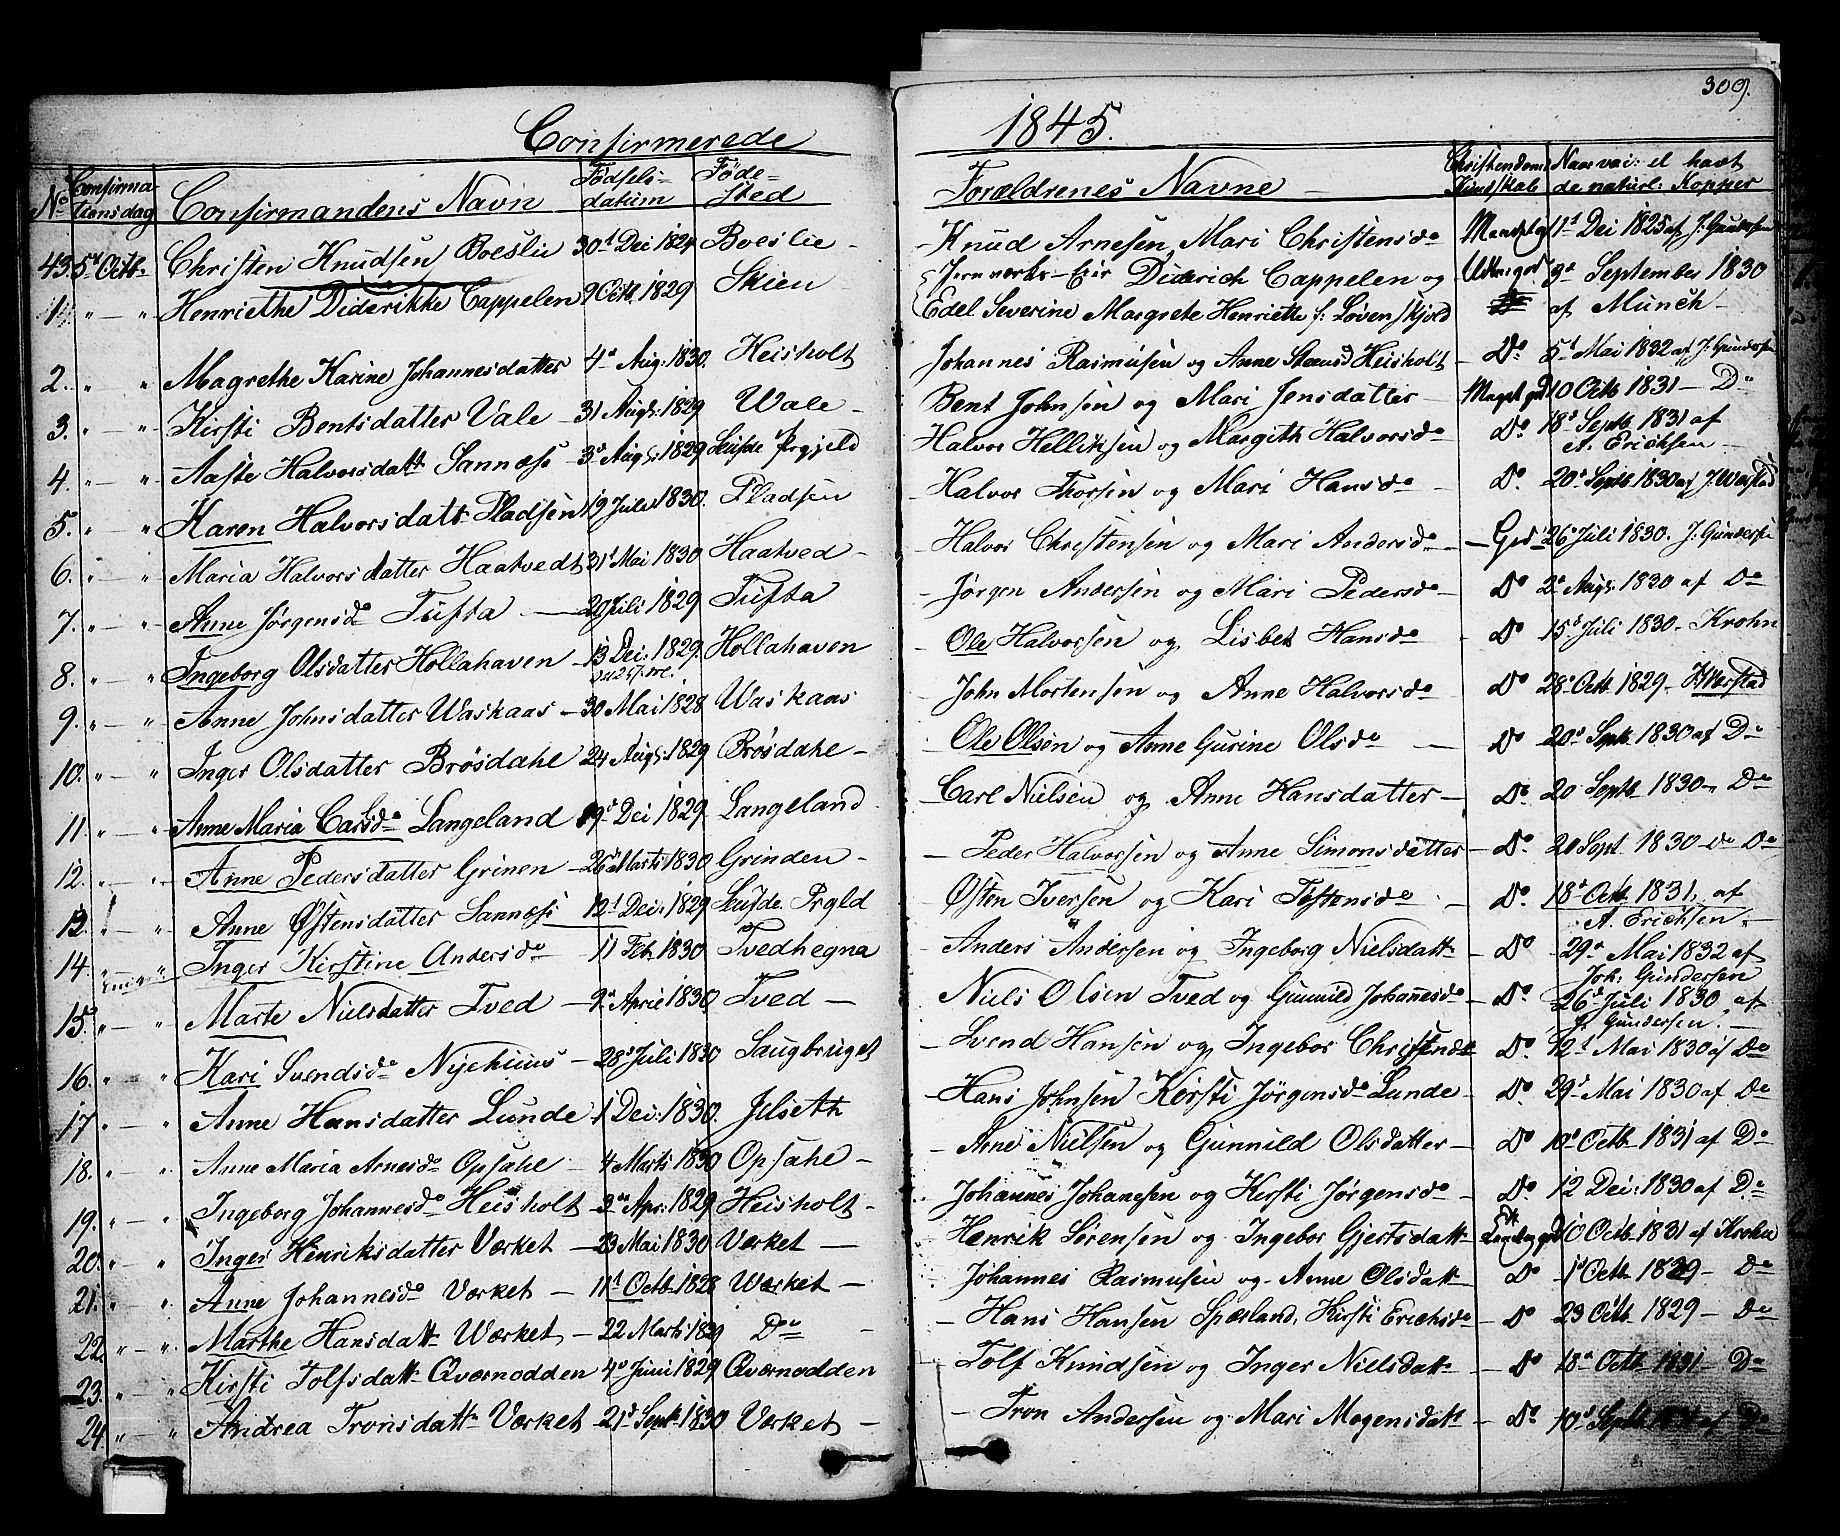 309.
Confirmerede 1845.
No Confirmationsdag Confirmandens Navn Födselsdatum Födested Forældrenes Navne Christendoms Kundskab Naar vac: el havt de naturl: Kopper
43. 5t Octb. Christen Knudsen Boeslie 30t Dec 1829 Boeslie - Knud Arnesen, Mari Christensdr 11t Dec 1825 af J. Gundersen
1. " — " Henriethe Diderikke Cappelen 9 Octb. 1829 Skien - Jernværks-Eier Diderich Cappelen og Edel Severine Margrete Henriette f: Løvenskjold Udm: god 3d September 1830 af Münch
2. " " Magrethe Karine Johannesdatter 4d Aug. 1830. Heisholt Johannes Rasmusen og Anne Heisholt Do 5d Mai 1832 af J. Gundersen
3. " — " Kirsti Bentsdatter Vale 31 Augs. 1829 Wale - Bent Johnsen og Mari Jensdatter Meget god 10 Octb 1831 — Do
4. " — " Aaste Halvorsdatt. Sannæss 3d Augs. 1829 Prgjeld Halvor Helliksen og Margith Halvorsdr Do 18d Septb 1831 af A. Erichsen
5. " — " Karen Halvorsdatt. Pladsen 19 Juli 1830. Pladsen Halvor Thorsen og Mari Hansdr Do 20d Septb 1830 af J. Werstad
6. " — " Maria Halvorsdatter Haatvedt 31t Mai 1830 Haatved - Halvor Christensen og Mari Andersdr — God 26d Juli 1830. J. Gundersen
7. " — " Anne Jørgensdr Tufta — 20 Juli 1829 Tufta - Jørgen Andersen og Mari Pedersdr - Do 2d Augs. 1830 af Do
8. " — " Ingeborg Olsdatter Hollahaven — 13 Dec: 1829. Hollahaven - Ole Halvorsen og Lisbet Hansdr - Do 15d Juli 1830 - Krohn
9. " — " Anne Johnsdatter Waskaas — 30 Mai 1828 Waskaas - John Mortensen og Anne Halvorsdr Do 28d Octb. 1829 - Werstad
10. " — " Inger Olsdatter Brøsdahl 24 Augs. 1829 Brøsdahl - Ole Olsen og Anne Gurine Olsdr Do 20d Septb 1830 af Do
11. " — " Anne Maria Carlsdr Langeland 19d Dec 1829. Langeland - Carl Nielsen og Anne Hansdatter - Do 20 Septb 1830 - Do
12. " — " Anne Pedersdatter Grinen 26d Marts 1830 Grinden - Peder Halvorsen og Anne Simonsdatter - Do 20 Sept 1830 - Do
13. " — " Anne Østensdatter Sannæss 12t Dec: 1829 Prgld - Østen Iversen og Kari Do 18d Octb 1831. af A. Erichsen
14. " — " Inger Kirstine Andersdr 11 Feb. 1830. Tvedhegna - Anders Andersen og Ingeborg Nielsdatt. Do 29d Mai 1832 af Joh: Gundersen
15. " — " Marte Nielsdatter Tved — 2d April 1830. Tved — Niels Olsen Tved og Gunnild Johannesdr - Do 26d Juli 1830, af J. Gundersen.
16. " — " Kari Svendsdr Nyehuus - 28d Juli 1830 Saugbruget - Svend Hansen og Ingebor Christensdr Do. 12t Mai 1830 af Do
17 " — " Anne Hansdatter Lunde 1 Dec: 1830. Jelseth - Hans Johnsen Kirsti Jørgensdr Lunde - Do. 29d Mai 1830 af Do
18. " — " Anne Maria Arnesdr Opsahl - 4 Marts 1830 Opsahl - Arne Nielsen og Gunnild Olsdatter - Do 10d Octb. 1831 af Do
19. " — " Ingeborg Johannesdr Heisholt - 3d Apr: 1829 Heisholt - Johannes Johanesen og Kirsti Jørgensdr - Do 12 Dec: 1830 af Do
20. " — " Inger Henriksdatter Værket - 23 Mai 1830 Værket - Henrik Sørensen og Ingebor Gjertsdatt. 10 Octb. 1831 af Krohn
21. " — " Anne Johannesdr Værket - 11t Octb. 1828 Værket - Johannes Rasmusen og Anne Olsdatt. Do 1d Octb 1829 - Do
22. " — " Marthe Hansdatt. Værket - 22 Marts 1829 Do - Hans Hansen Spæsland, Kirsti Erichsdr - Do 23 Octb 1829 - Do
23. " — " Kirsti Tolfsdatt. Qværnodden 4d Juni 1829 Qværnodden - Tolf Knudsen og Inger Nielsdatt. - Do 18d Octb 1831 - Do
24. " — " Andrea Tronsdatt. Værket - 21d Septb. 1830 Værket - Tron Andersen og Mari Mogensdatt. - Do 10d Septb af Do